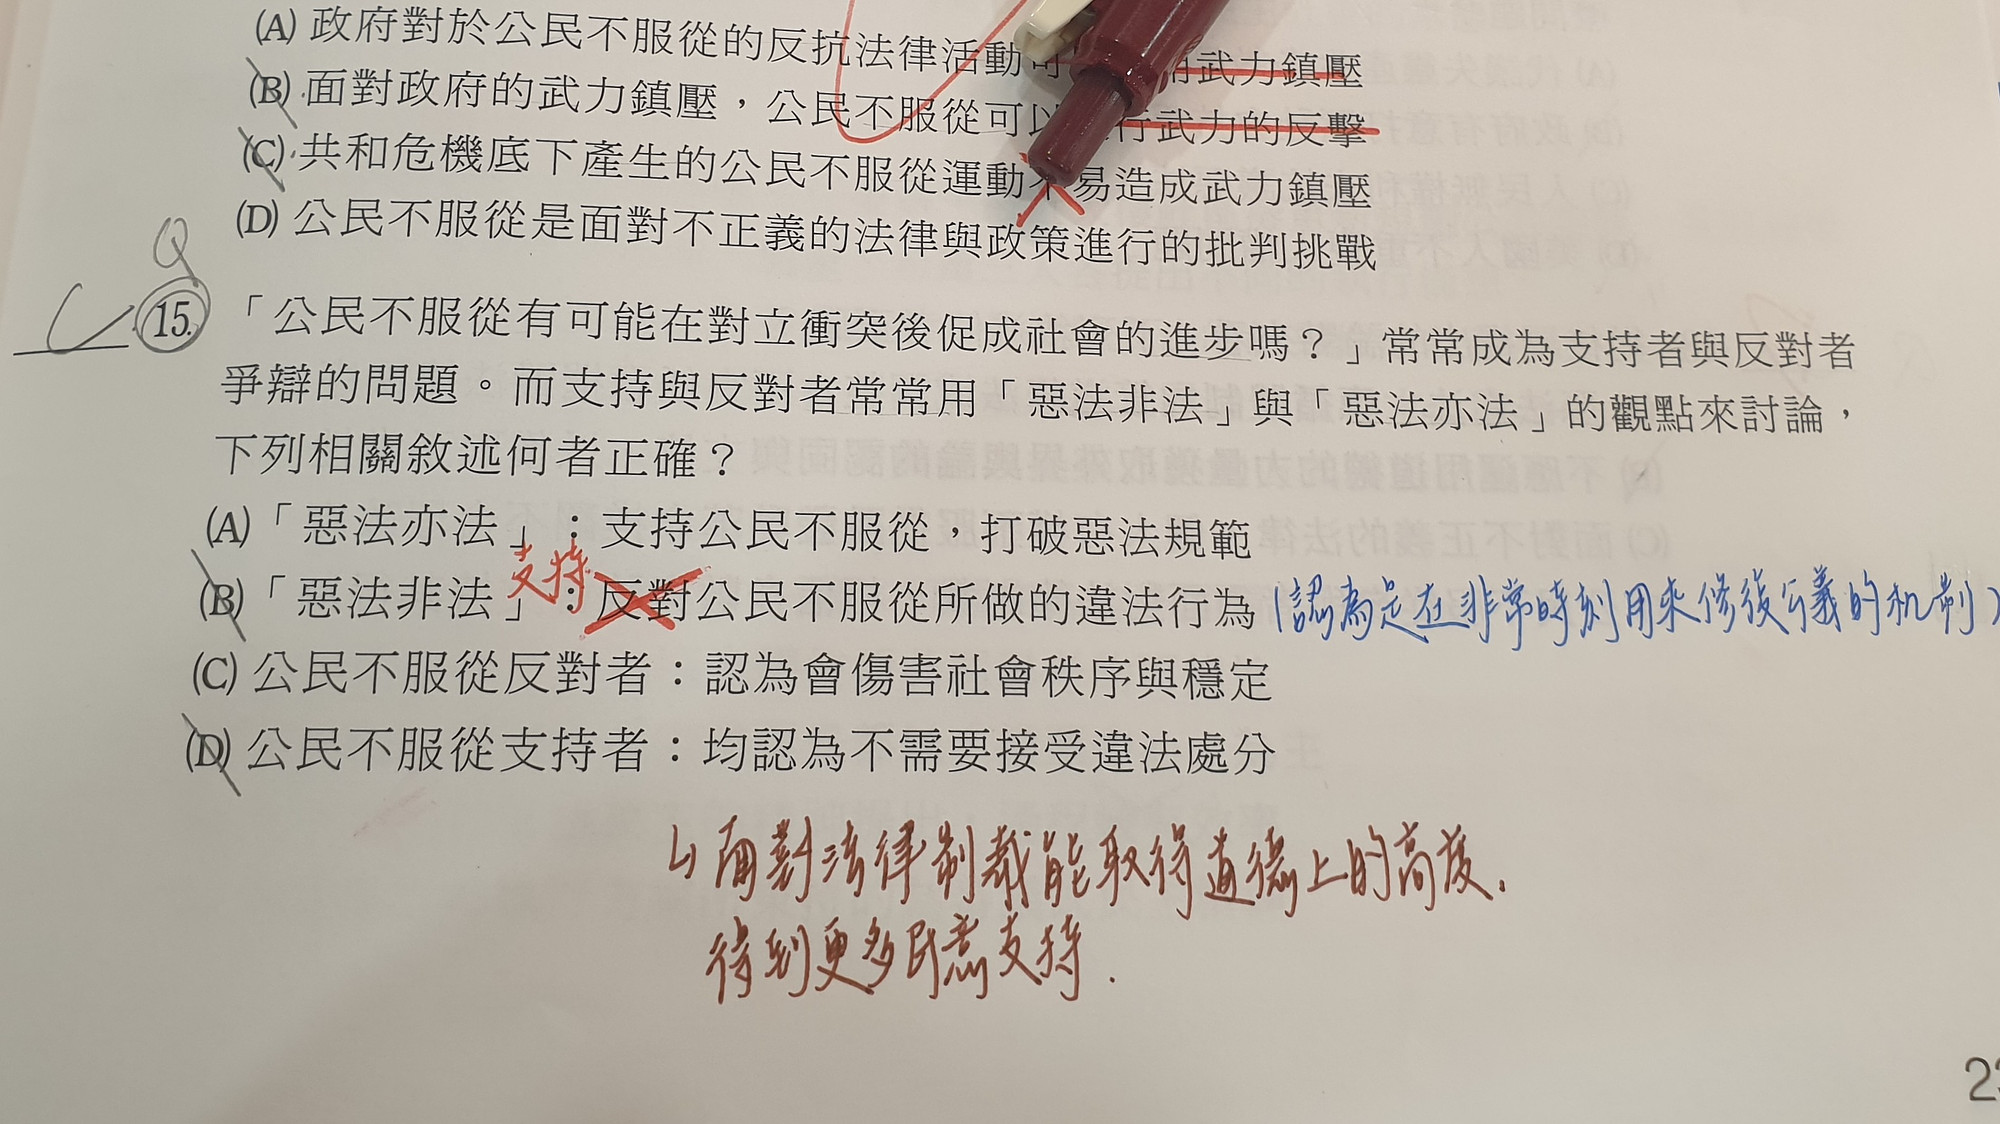 (A) 政府對於公民不服從的反抗法律活動可 武力鎮壓
(B) 面對政府的武力鎮壓，公民不服從可以 行武力的反擊
(C) 共和危機底下產生的公民不服從運動不易造成武力鎮壓
(D) 公民不服從是面對不正義的法律與政策進行的批判挑戰
Q
C 15. 「公民不服從有可能在對立衝突後促成社會的進步嗎？」常常成為支持者與反對者
爭辯的問題。而支持與反對者常常用「惡法非法」與「惡法亦法」的觀點來討論，
下列相關敘述何者正確？
(A)「惡法亦法」：支持公民不服從，打破惡法規範
支持
(B)「惡法非法」：反對公民不服從所做的違法行為 (認為是在非常時刻用來修復公義的机制)
(C) 公民不服從反對者：認為會傷害社會秩序與穩定
(D) 公民不服從支持者：均認為不需要接受違法處分
↳ 面對法律制裁能取得道德上的高度.
得到更多民意支持.
23